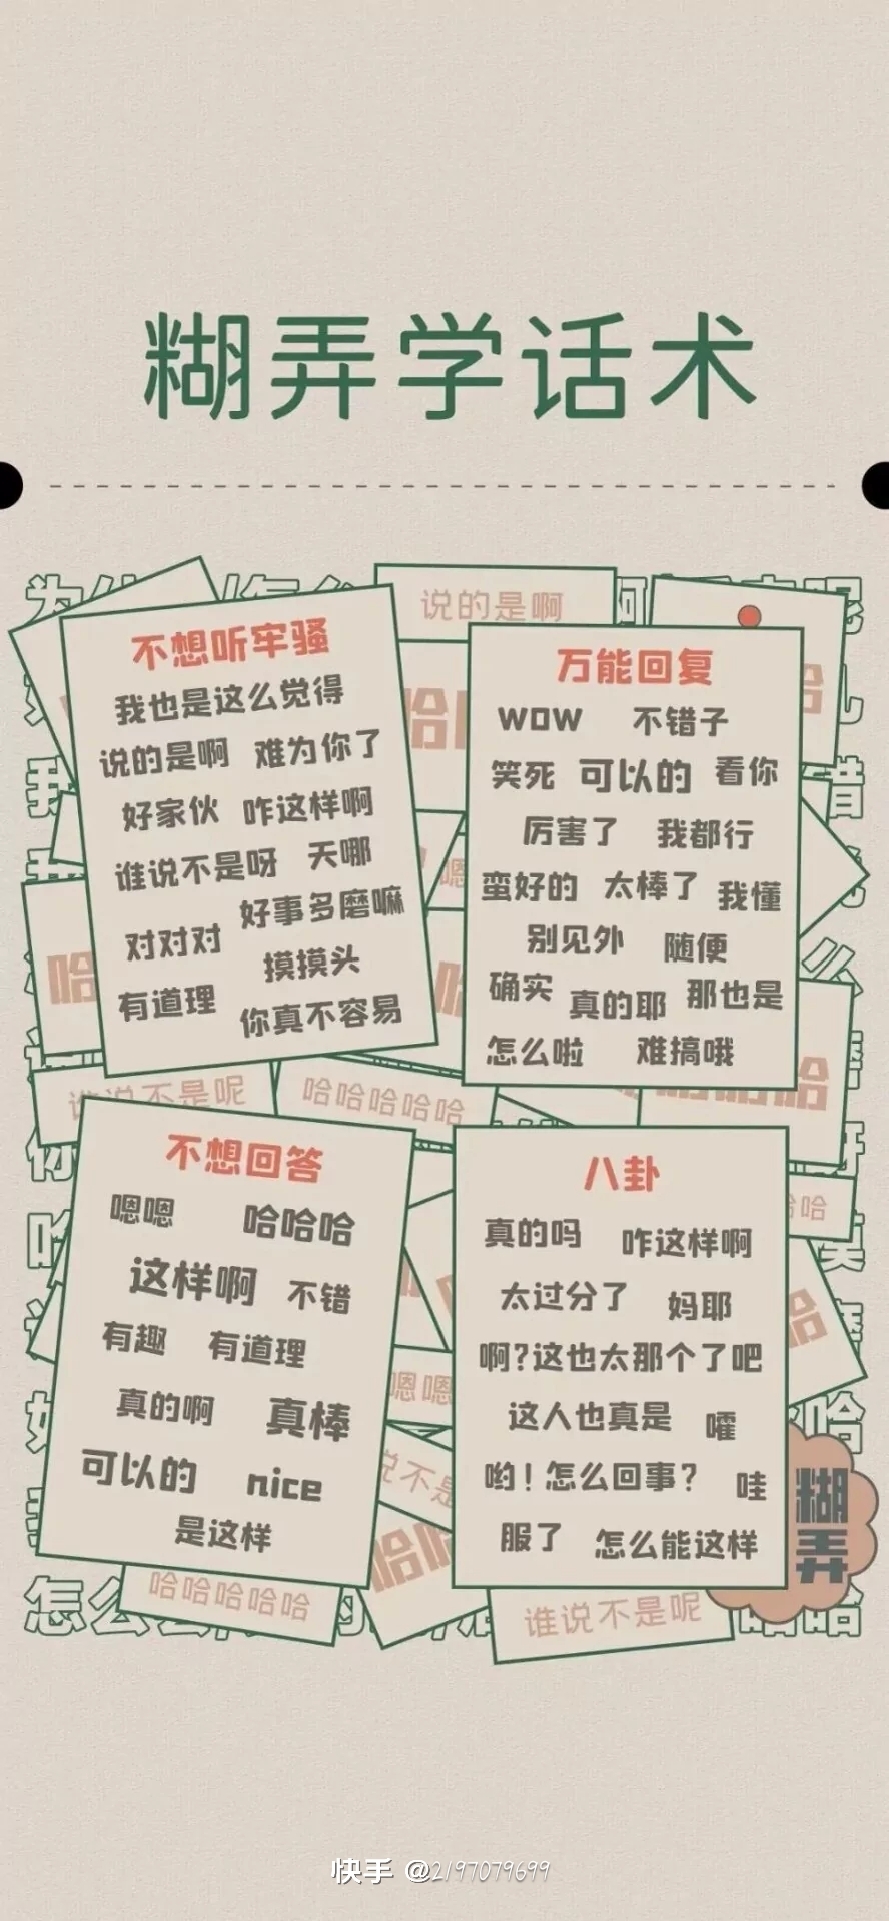 糊弄学话术
说的是啊
不想听牢骚
我也是这么觉得
说的是啊 难为你了
好家伙 咋这样啊
谁说不是呀 天哪
对对对 好事多磨嘛
摸摸头
有道理 你真不容易
万能回复
WOW 不错子
笑死 可以的 看你
厉害了 我都行
蛮好的 太棒了 我懂
别见外 随便
确实 真的耶 那也是
怎么啦 难搞哦
谁说不是呢 哈哈哈哈哈
不想回答
嗯嗯 哈哈哈
这样啊 不错
有趣 有道理
真的啊 真棒
可以的 nice
是这样
八卦
真的吗 咋这样啊
太过分了 妈耶
啊?这也太那个了吧
这人也真是 嚯
哟!怎么回事? 哇
服了 怎么能这样
糊弄
哈哈哈哈哈
谁说不是呢
快手 @2197079699